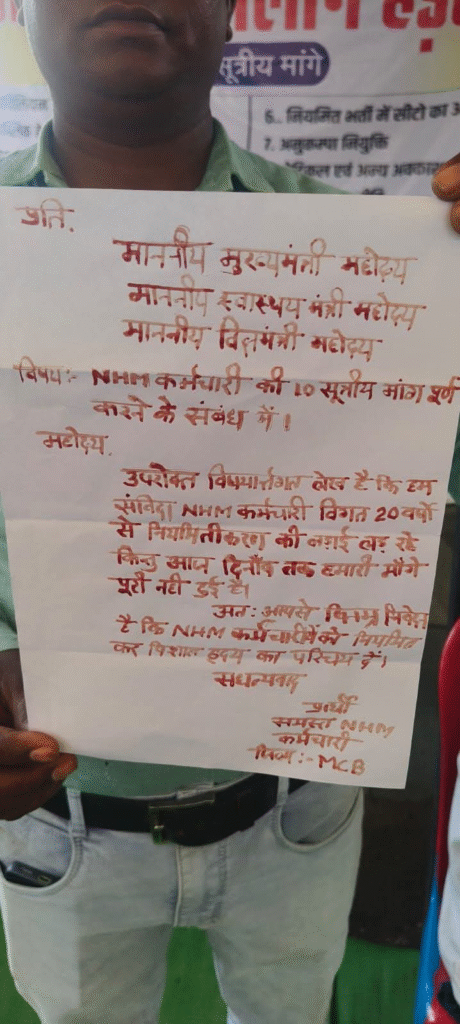 सूत्रीय मांगे
6.. नियमित भर्ती में सीटो का
7. अनुकम्पा नियुक्ति
एवं अन्य अवकाश
प्रति,
माननीय मुख्यमंत्री महोदय
माननीय स्वास्थय मंत्री महोदय
माननीय वित्तमंत्री महोदय
विषय:- NHM कर्मचारी की 10 सूत्रीय मांग पूर्ण
करने के संबंध में।
महोदय,
उपरोक्त विषयार्न्तगत लेख है कि हम
संविदा NHM कर्मचारी विगत 20 वर्षो
से नियमितीकरण की लड़ाई लड़ रहे
किन्तु आज दिनाँक तक हमारी माँगे
पूरी नही हुई है।
अतः आपसे विनम्र निवेदन
है कि NHM कर्मचारीयों को नियमित
कर विशाल हृदय का परिचय दें।
सधन्यवाद
प्रार्थी
समस्त NHM
कर्मचारी
जिला:- MCB